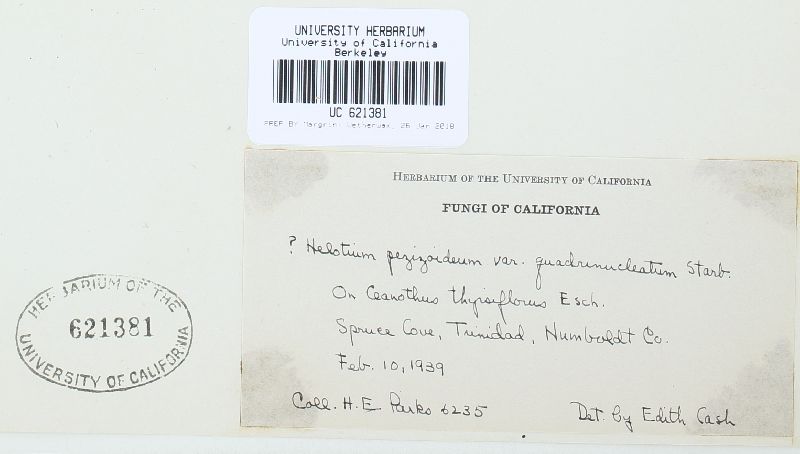 UNIVERSITY HERBARIUM
University of California
Berkeley
UC 621381
PREP BY Margriet Wetherwax, 26 Jan 2018
HERBARIUM OF THE UNIVERSITY OF CALIFORNIA
FUNGI OF CALIFORNIA
? Helotium pezizoideum var. quadrinucleatum Starb.
On Ceanothus thyrsiflorus Esch.
Spruce Cove, Trinidad, Humboldt Co.
Feb. 10, 1939
Coll. H. E. Parks 6235 Det. by Edith Cash
HERBARIUM OF THE
621381
UNIVERSITY OF CALIFORNIA